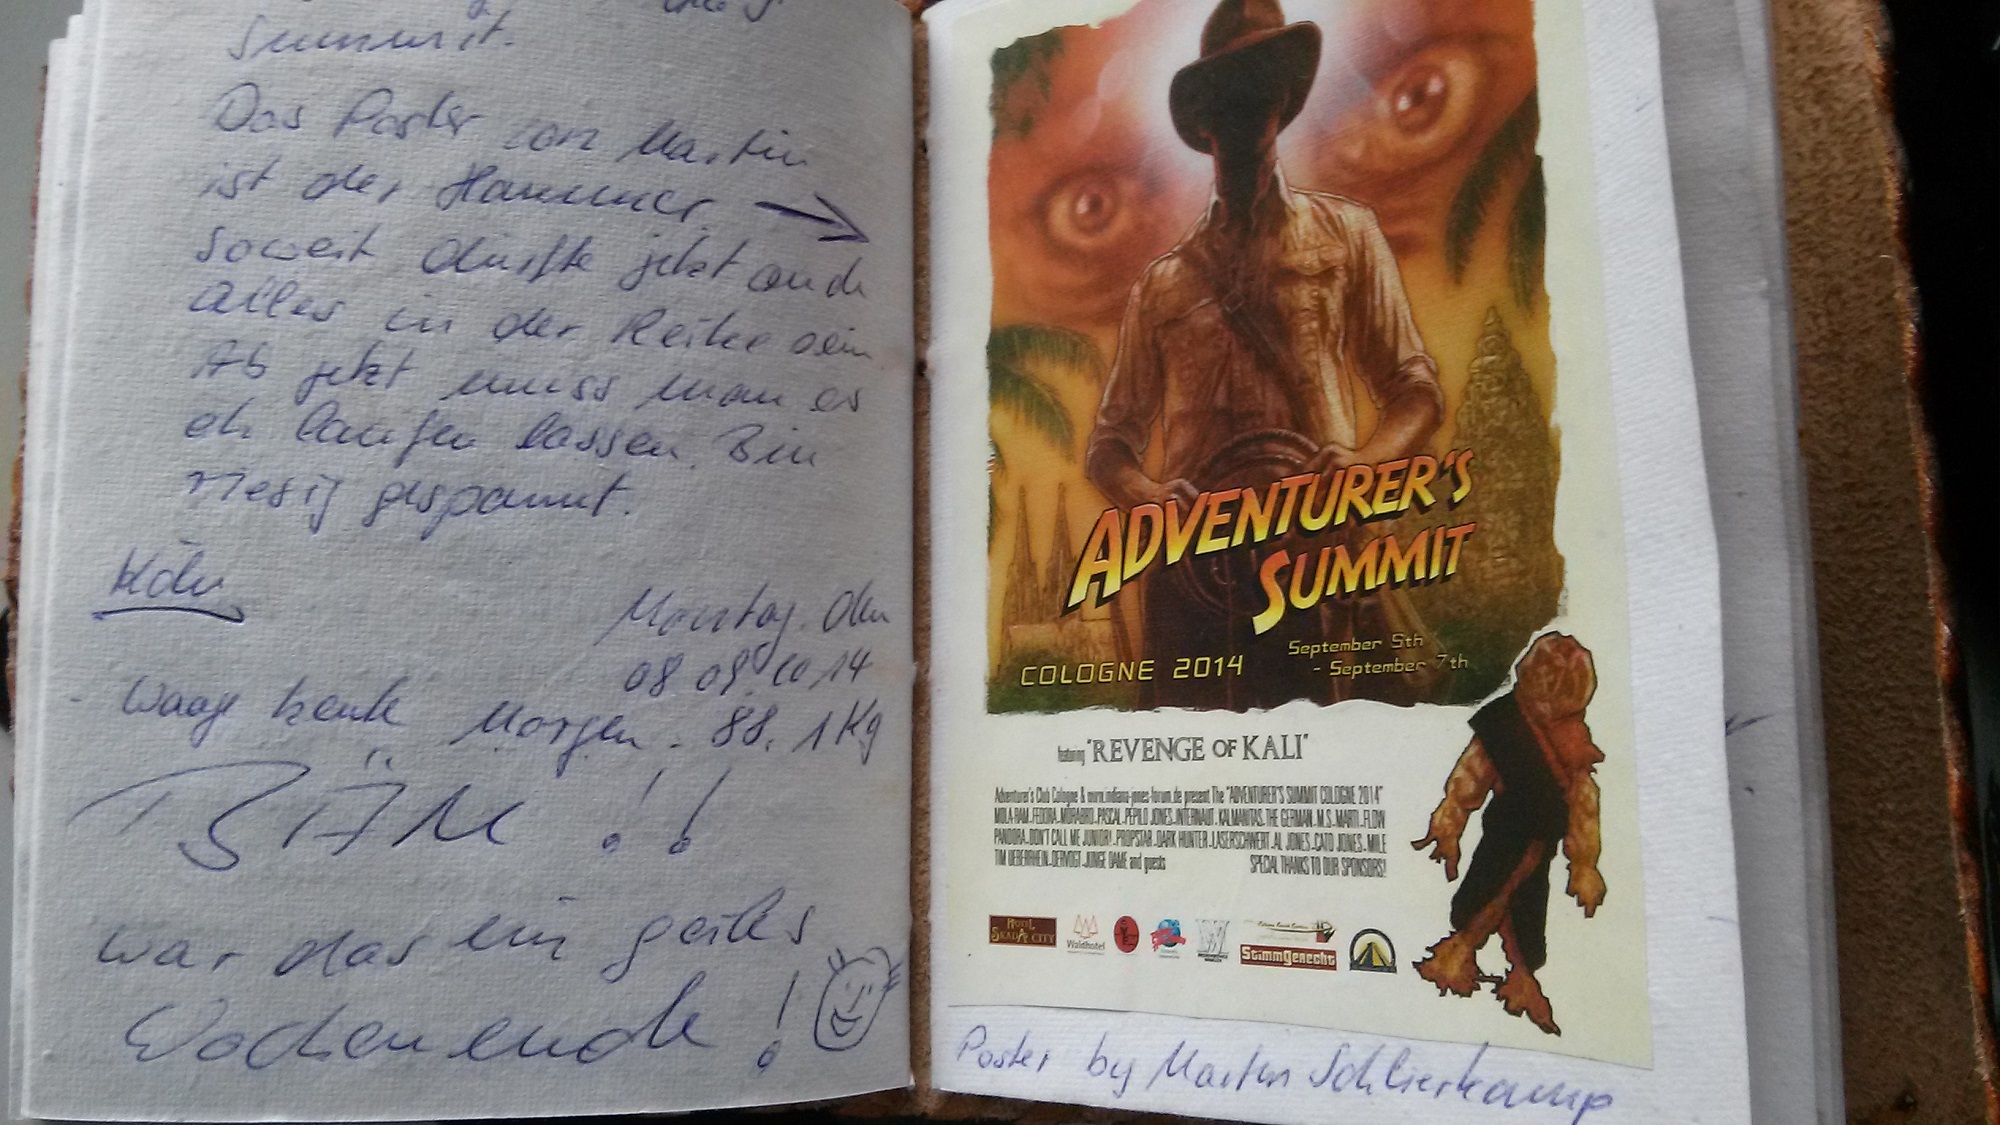 Summit.
Das Poster von Martin
ist der Hammer
soweit dürfte jetzt auch
alles in der Reihe sein
Ab jetzt muss man es
eh laufen lassen. Bin
riesig gespannt.
Köln
Montag. den
08 09. 2014
- Waage heute Morgen. 88.1 Kg
BÄM !!
War das ein geiles
Wochenende !
ADVENTURER'S
SUMMIT
COLOGNE 2014
September 5th
- September 7th
featuring "REVENGE OF KALI"
Adventurer's Club Cologne & www.indiana-jones-forum.de present The "ADVENTURER'S SUMMIT COLOGNE 2014"
MOLA-RAM-FEDORA-MORABRO-PASCAL-PEPILO JONES-INTERNAUT-KALMANITAS-THE GERMAN-M.S.-MARTI-FLOW
PANDORA-DON'T CALL ME JUNIOR!-PROPSTAR-DARK HUNTER-LASERSCHWERT-AL JONES-CATO JONES-MILE
TIM UEBERRHEIN-DERVOGT-JUNGE DAME and guests SPECIAL THANKS TO OUR SPONSORS!
Waldhotel
Stimmgerecht
Poster by Martin Schlierkamp